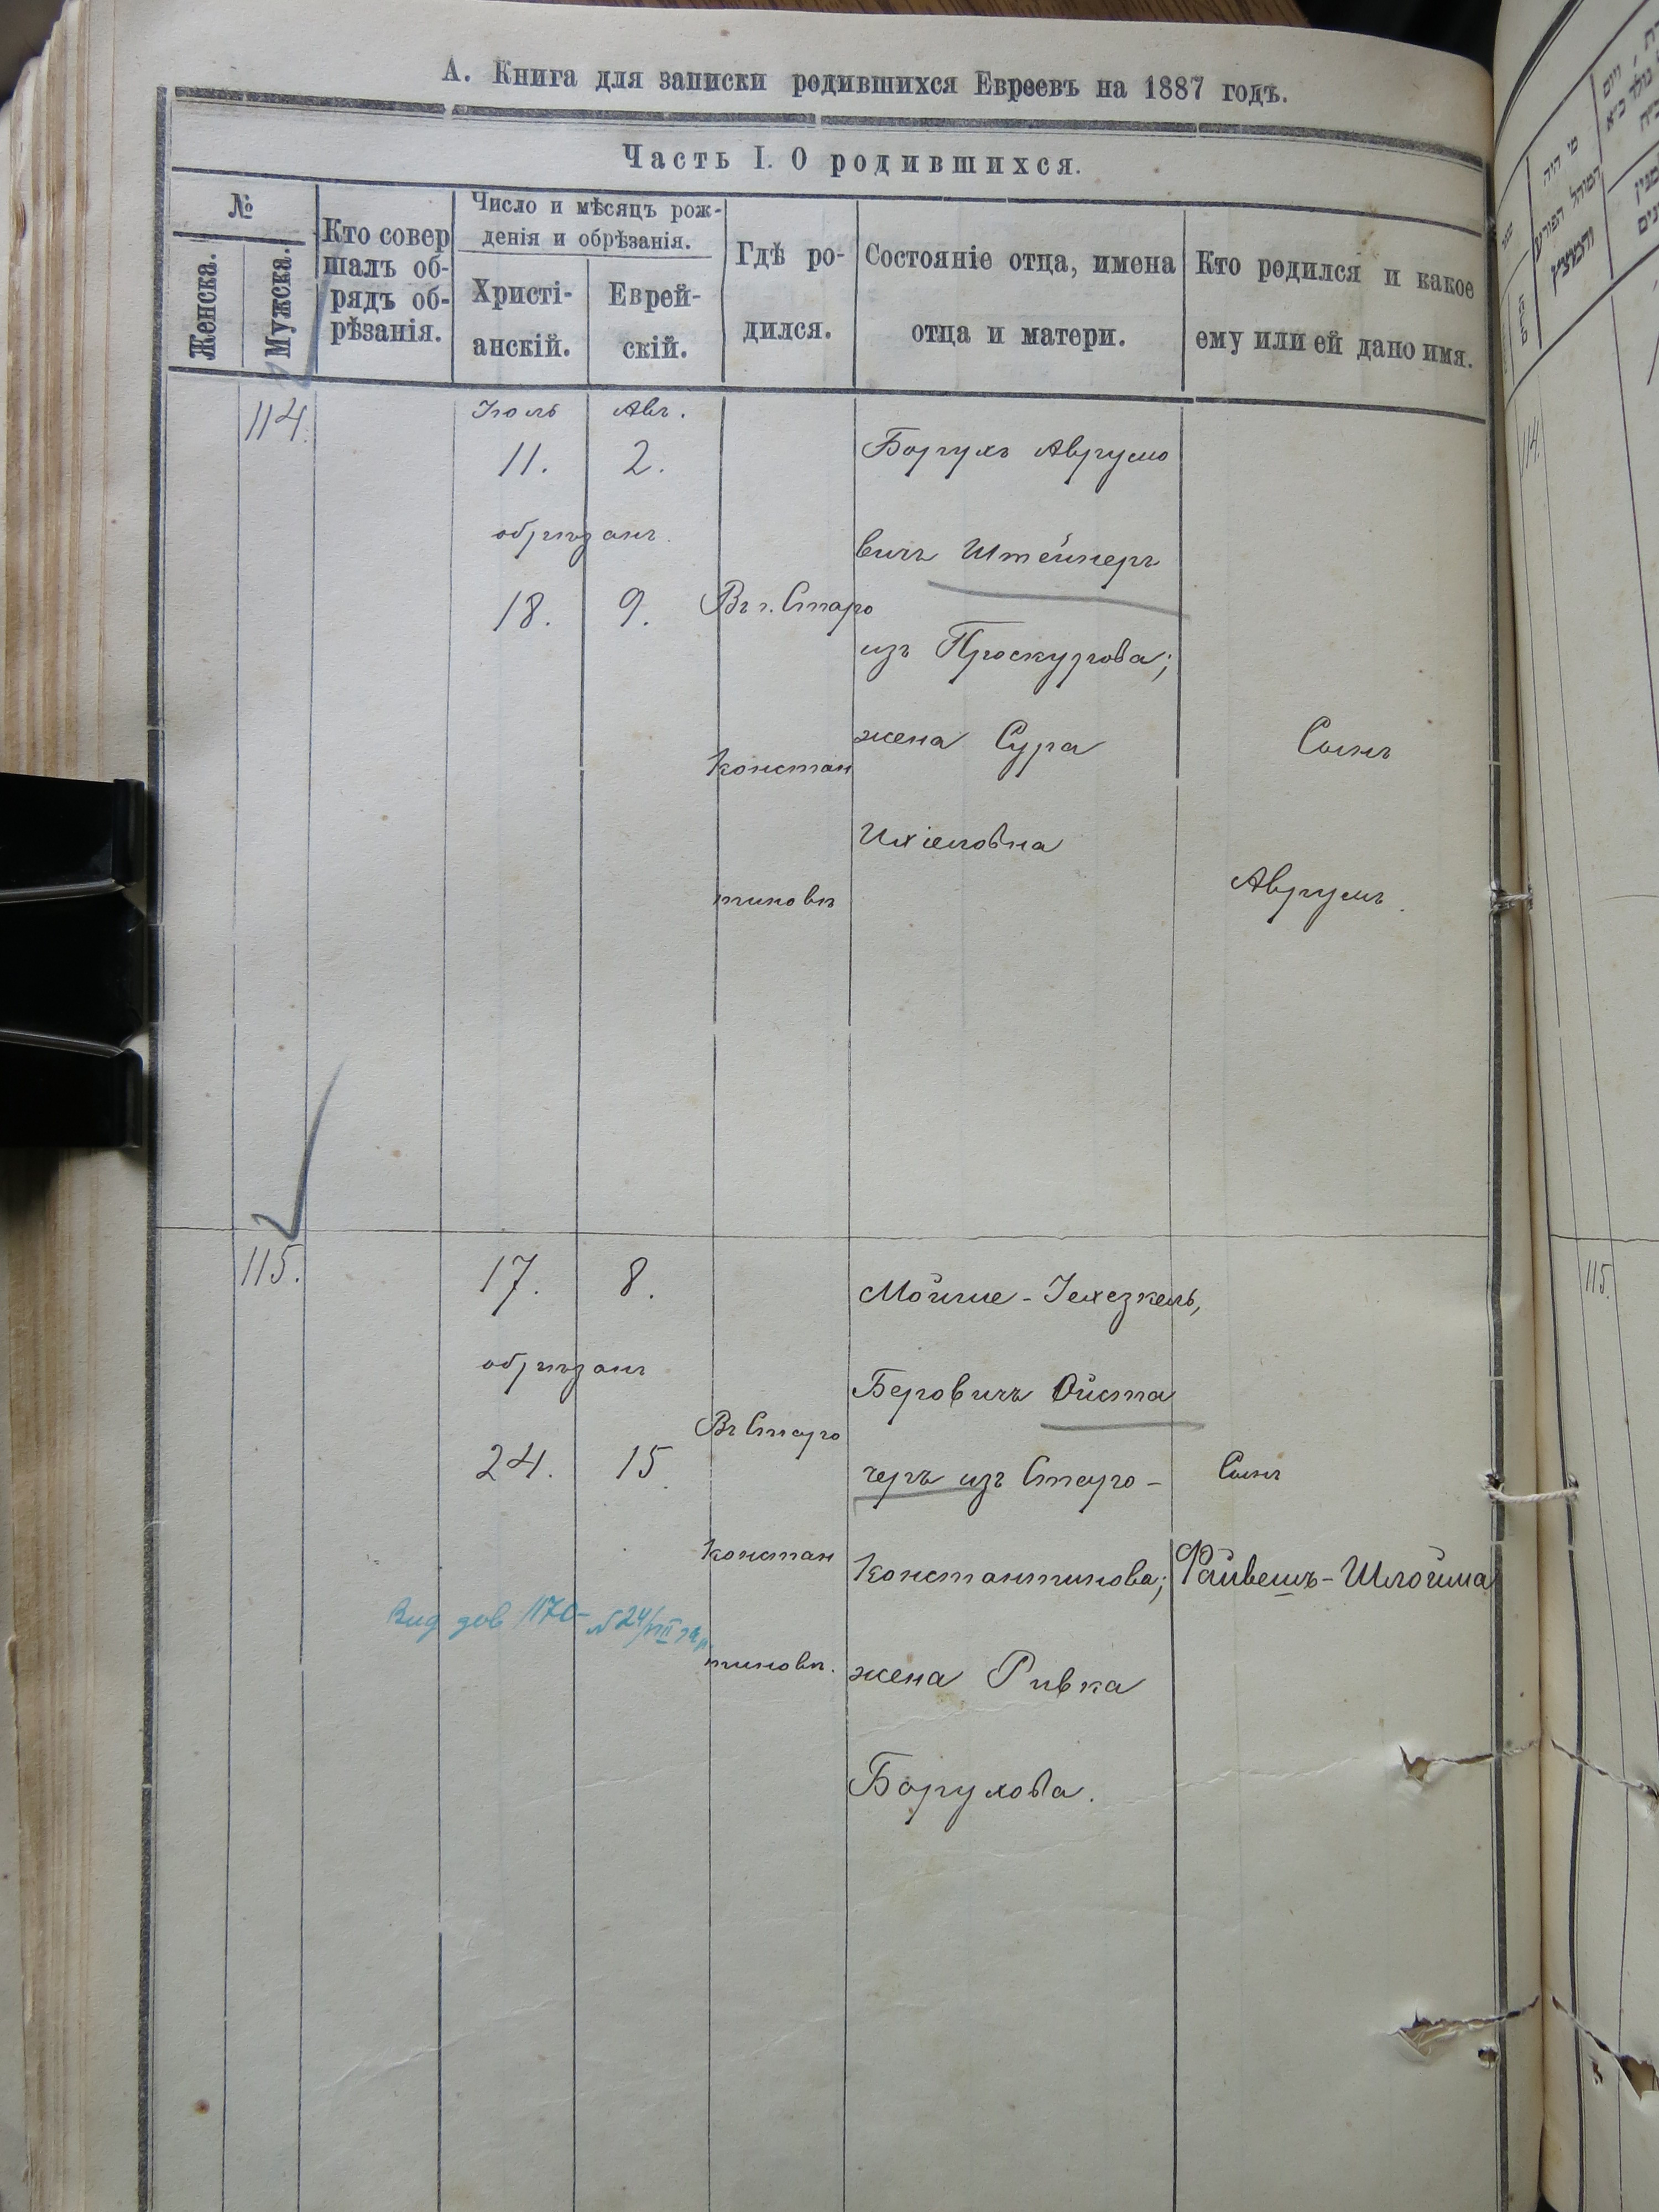 А. Книга для записки родившихся Евреевъ на 1887 годъ.
Часть I. О родившихся.
№
Женска.
Мужска.
Кто совер
шалъ об-
рядъ об-
рѣзанія.
Число и мѣсяцъ рож-
денія и обрѣзанія.
Христі-
анскій.
Еврей-
скій.
Гдѣ ро-
дился.
Состояніе отца, имена
отца и матери.
Кто родился и какое
ему или ей дано имя.
114.
Іюль
Авг.
11.
2.
обрѣзанъ.
18.
9.
Въ г. Старо
констан
тиновѣ
Борухъ Аврумо
вичъ Штейнеръ
изъ Проскурова;
жена Сура
Ихіеловна
Сынъ
Аврумъ.
115.
17.
8.
обрѣзанъ
24.
15.
Въ Старо
констан
тиновѣ.
Мойше-Іехезкель,
Беровичъ Ойста
черъ из Старо-
константинова;
жена Ривка
Борухова.
Сынъ
Файвешъ-Шлойма
114.
115.